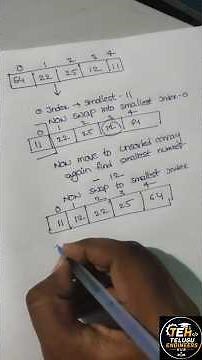 0 1 2 3 4
64 22 25 12 11
0 index → smallest - 11
Now swap into smallest index-0
0 1 2 3 4
11 22 25 12 64
Now move to unsorted array
again find smallest number
- 12
Now swap to smallest index
0 1 2 3 4
11 12 22 25 64
TEH
TELUGU
ENGINEERS
HUB